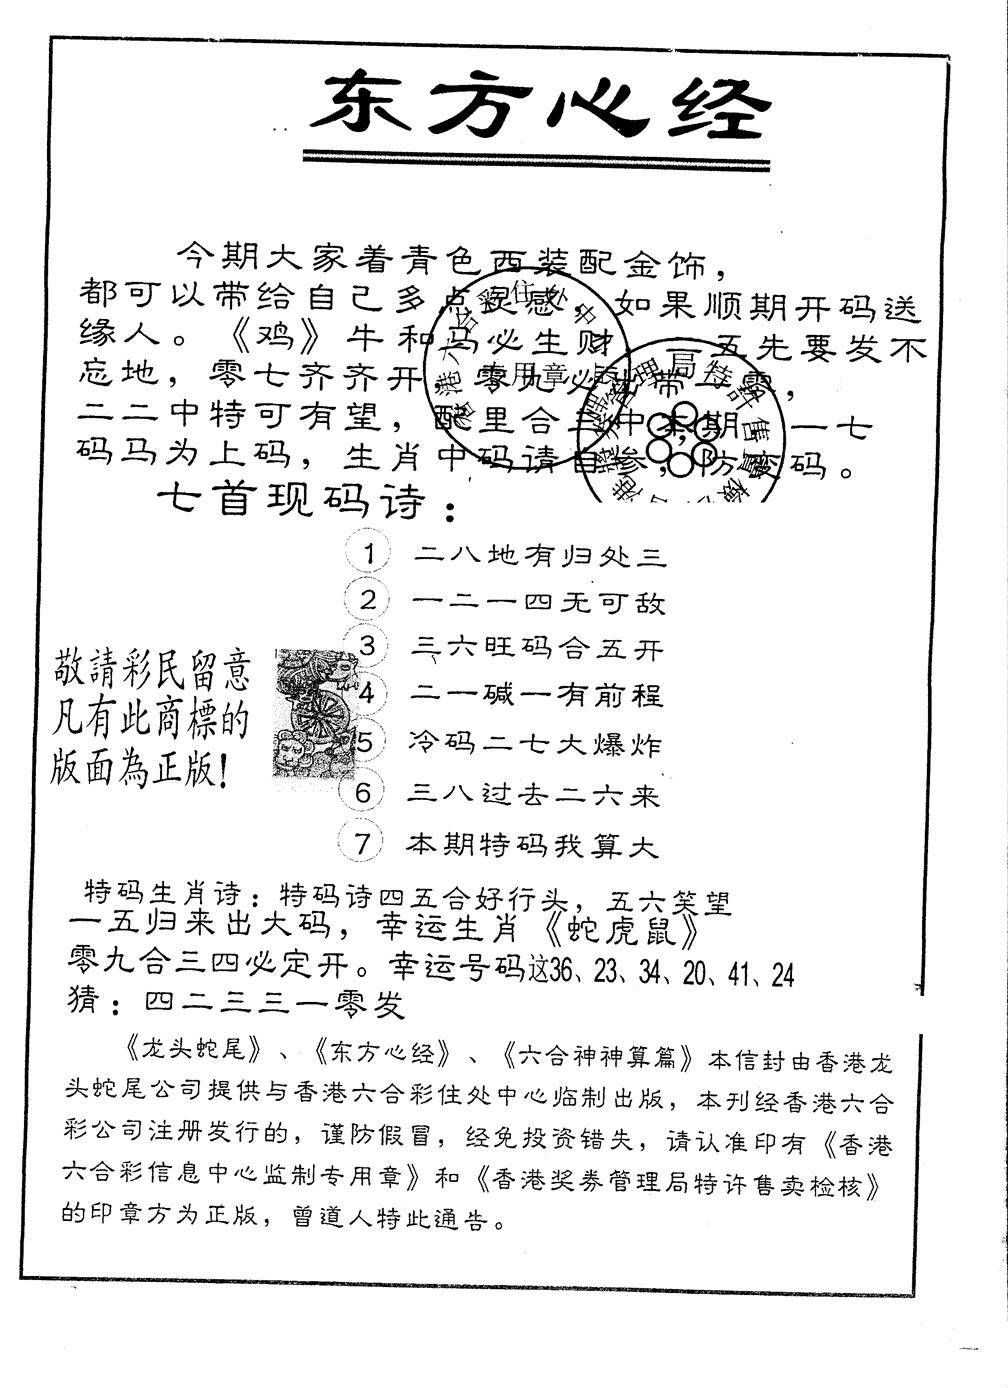 东方心经
今期大家着青色西装配金饰，
都可以带给自己多点灵感 如果顺期开码送
缘人。《鸡》牛和马必生财 一五先要发不
忘地，零七齐齐开，零九必 带一零，
二二中特可有望，配里合三中本期，一七
码马为上码，生肖中码请自参，防 码。
七首现码诗：
1 二八地有归处三
2 一二一四无可敌
3 三六旺码合五开
4 二一碱一有前程
5 冷码二七大爆炸
6 三八过去二六来
7 本期特码我算大
敬請彩民留意
凡有此商標的
版面為正版!
特码生肖诗：特码诗四五合好行头，五六笑望
一五归来出大码，幸运生肖《蛇虎鼠》
零九合三四必定开。幸运号码这36、23、34、20、41、24
猜：四二三三一零发
《龙头蛇尾》、《东方心经》、《六合神神算篇》本信封由香港龙
头蛇尾公司提供与香港六合彩住处中心临制出版，本刊经香港六合
彩公司注册发行的，谨防假冒，经免投资错失，请认准印有《香港
六合彩信息中心监制专用章》和《香港奖券管理局特许售卖检核》
的印章方为正版，曾道人特此通告。